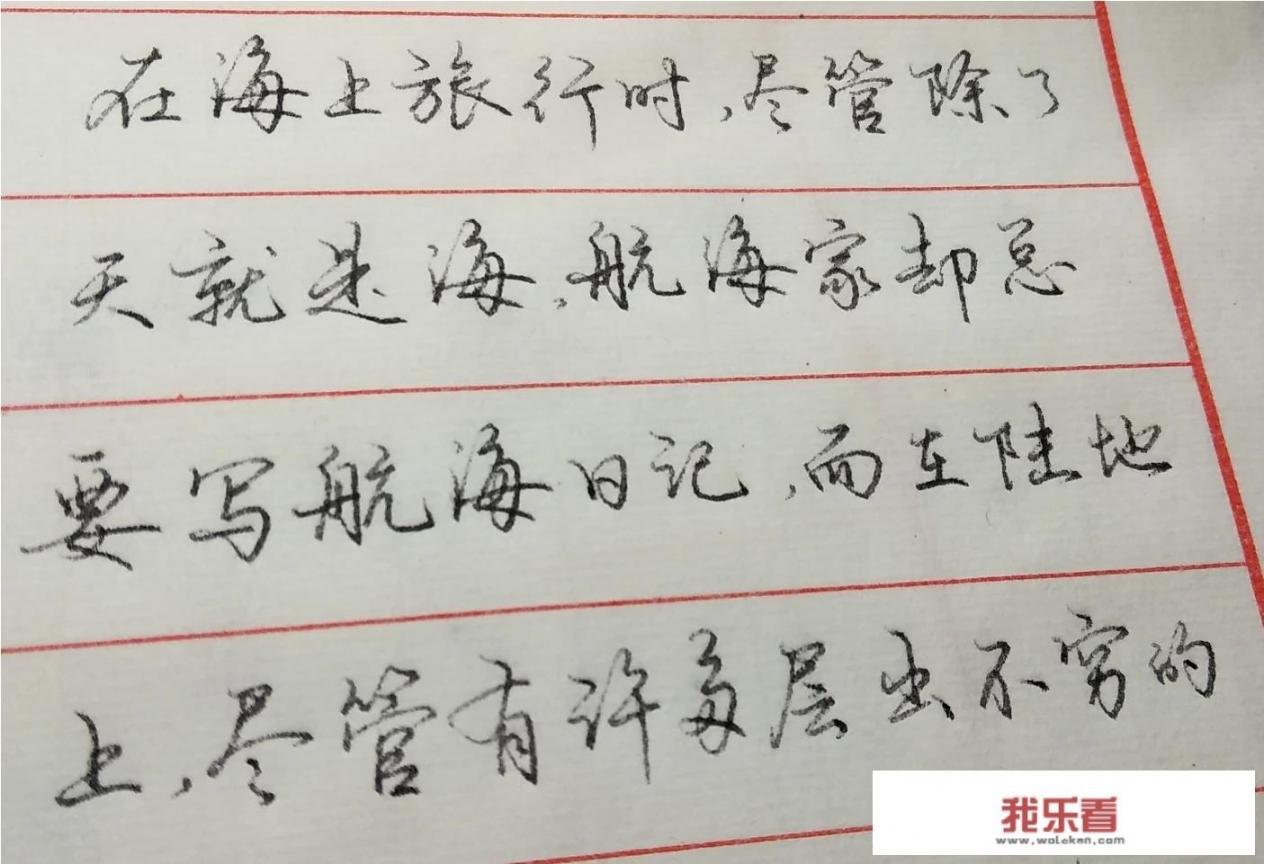 在海上旅行时,尽管除了
天就是海,航海家却总
要写航海日记,而在陆地
上,尽管有许多层出不穷的
我乐看
www.woleken.com